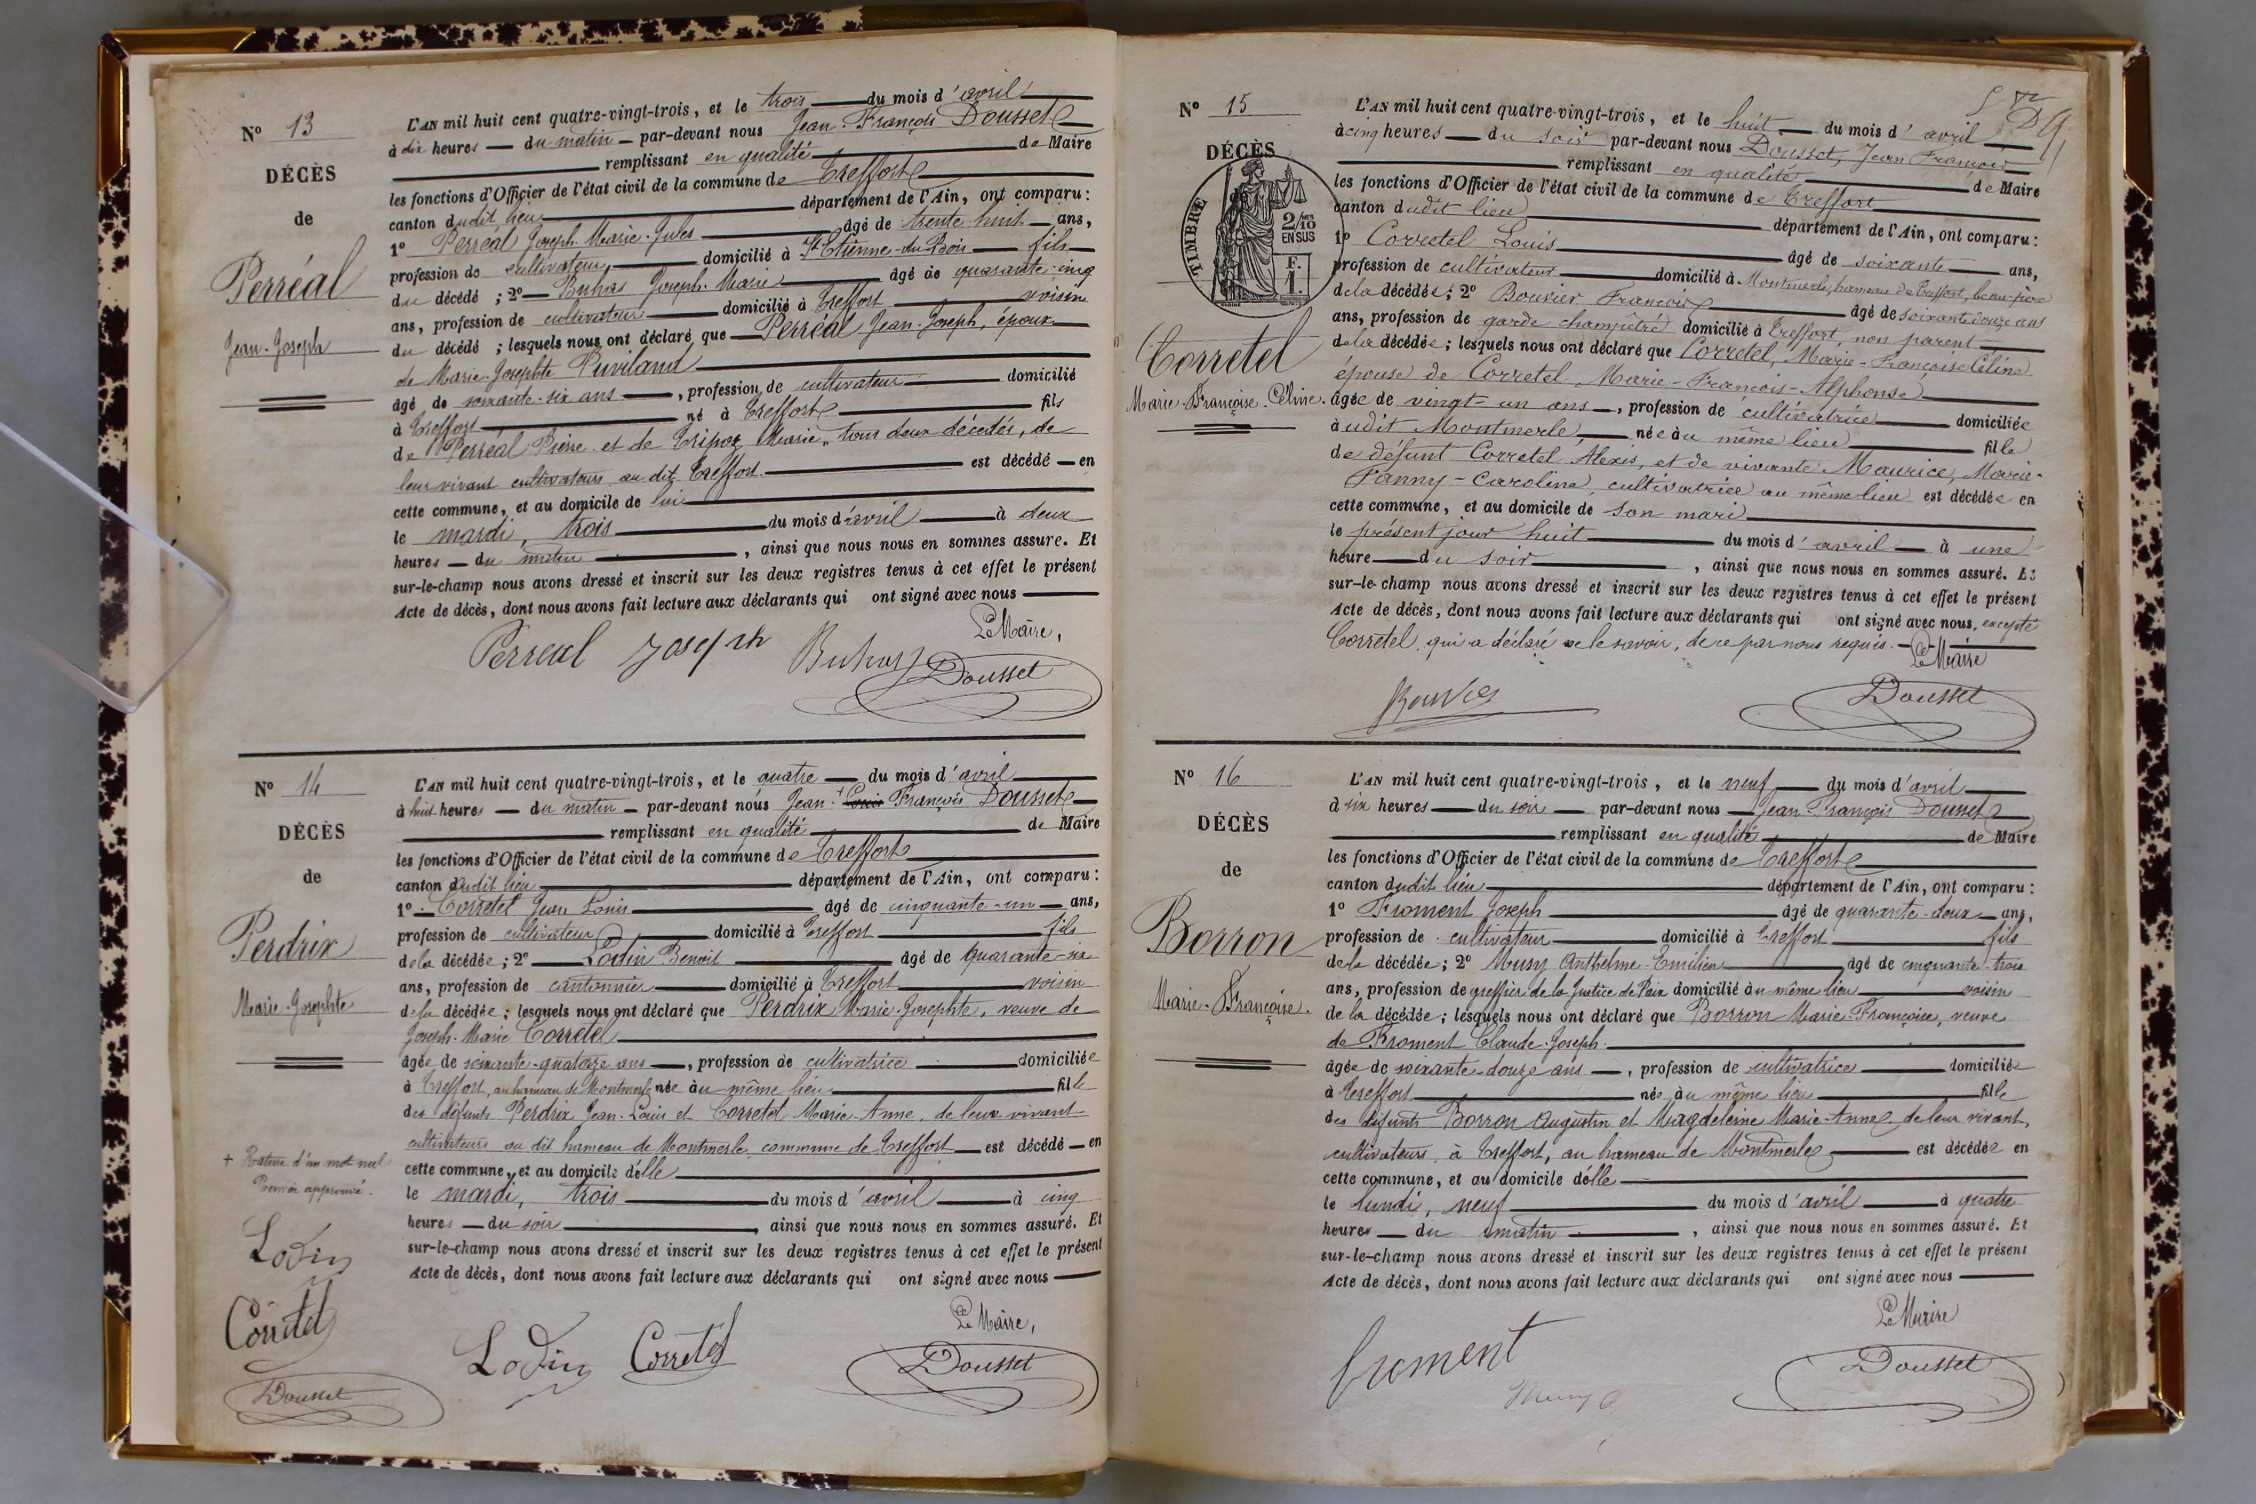 N° 13
DÉCÈS
de
Perréal
Jean-Joseph
L'AN mil huit cent quatre-vingt-trois, et le trois du mois d'avril
à dix heures du matin par-devant nous Jean-François Dousset
remplissant en qualité de Maire
les fonctions d'Officier de l'état civil de la commune de Treffort
canton dudit lieu département de l'Ain, ont comparu :
1° Perréal Joseph-Marie-Jules âgé de trente-huit ans,
profession de cultivateur domicilié à St Etienne-du-Bois fils
du décédé ; 2° Buhas Joseph-Marie âgé de quarante-cinq
ans, profession de cultivateur domicilié à Treffort voisin
du décédé ; lesquels nous ont déclaré que Perréal Jean-Joseph, époux
de Marie-Josephte Puviland
âgé de soixante-six ans, profession de cultivateur domicilié
à Treffort né à Treffort fils
de Perréal Pierre et de Tripoz Marie, tous deux décédés, de
leur vivant cultivateurs au dit Treffort est décédé en
cette commune, et au domicile de lui
le mardi, trois du mois d'avril à deux
heures du matin, ainsi que nous nous en sommes assuré. Et
sur-le-champ nous avons dressé et inscrit sur les deux registres tenus à cet effet le présent
Acte de décès, dont nous avons fait lecture aux déclarants qui ont signé avec nous
Le Maire,
Perreal Joseph Buhas Dousset
N° 14
DÉCÈS
de
Perdrix
Marie-Josephte
+ Rature d'un mot nul
approuvé.
Lodin
Corretel
Dousset
L'AN mil huit cent quatre-vingt-trois, et le quatre du mois d'avril
à huit heures du matin par-devant nous Jean + François Dousset
remplissant en qualité de Maire
les fonctions d'Officier de l'état civil de la commune de Treffort
canton dudit lieu département de l'Ain, ont comparu :
1° Corretel Jean Louis âgé de cinquante-un ans,
profession de cultivateur domicilié à Treffort fils
de la décédée ; 2° Lodin Benoit âgé de quarante-six
ans, profession de cantonnier domicilié à Treffort voisin
de la décédée ; lesquels nous ont déclaré que Perdrix Marie-Josephte, veuve de
Joseph-Marie Corretel
âgée de soixante-quatorze ans, profession de cultivatrice domiciliée
à Treffort, au hameau de Montmerle née au même lieu fille
des défunts Perdrix Jean-Louis et Corretel Marie-Anne, de leur vivant
cultivateurs au dit hameau de Montmerle, commune de Treffort est décédé en
cette commune, et au domicile d'elle
le mardi, trois du mois d'avril à cinq
heures du soir, ainsi que nous nous en sommes assuré. Et
sur-le-champ nous avons dressé et inscrit sur les deux registres tenus à cet effet le présent
Acte de décès, dont nous avons fait lecture aux déclarants qui ont signé avec nous
Le Maire,
Lodin Corretel Dousset
N° 15
DÉCÈS
TIMBRE
2/10
EN SUS
F.
1.
Corretel
Marie-Françoise-Céline.
L'AN mil huit cent quatre-vingt-trois, et le huit du mois d'avril
à cinq heures du soir par-devant nous Dousset, Jean François
remplissant en qualité de Maire
les fonctions d'Officier de l'état civil de la commune de Treffort
canton dudit lieu département de l'Ain, ont comparu :
1° Corretel Louis âgé de soixante ans,
profession de cultivateur domicilié à Montmerle, hameau de Treffort, beau-père
de la décédée ; 2° Bouvier François âgé de soixante douze ans
ans, profession de garde champêtre domicilié à Treffort, non parent
de la décédée ; lesquels nous ont déclaré que Corretel, Marie-Françoise Céline
épouse de Corretel Marie-François-Alphonse
âgée de vingt-un ans, profession de cultivatrice domiciliée
audit Montmerle, née au même lieu fille
de défunt Corretel Alexis, et de vivante Maurice, Marie-
Fanny-Caroline, cultivatrice au même lieu est décédée en
cette commune, et au domicile de son mari
le présent jour huit du mois d'avril à une
heure du soir, ainsi que nous nous en sommes assuré. Et
sur-le-champ nous avons dressé et inscrit sur les deux registres tenus à cet effet le présent
Acte de décès, dont nous avons fait lecture aux déclarants qui ont signé avec nous, excepté
Corretel qui a déclaré ne le savoir, de ce par nous requis.
Le Maire
Dousset
N° 16
DÉCÈS
de
Borron
Marie-Françoise.
L'AN mil huit cent quatre-vingt-trois, et le neuf du mois d'avril
à six heures du soir par-devant nous Jean François Dousset
remplissant en qualité de Maire
les fonctions d'Officier de l'état civil de la commune de Treffort
canton dudit lieu département de l'Ain, ont comparu :
1° Froment Joseph âgé de quarante-deux ans,
profession de cultivateur domicilié à Treffort fils
de la décédée ; 2° Musy Anthelme-Emilien âgé de cinquante-trois
ans, profession de greffier de la Justice de Paix domicilié au même lieu voisin
de la décédée ; lesquels nous ont déclaré que Borron Marie-Françoise, veuve
de Froment Claude-Joseph
âgée de soixante-douze ans, profession de cultivatrice domiciliée
à Treffort née au même lieu fille
des défunts Borron Augustin et Magdeleine Marie-Anne, de leur vivant,
cultivateurs à Treffort, au hameau de Montmerle est décédée en
cette commune, et au domicile d'elle
le lundi, neuf du mois d'avril à quatre
heures du matin, ainsi que nous nous en sommes assuré. Et
sur-le-champ nous avons dressé et inscrit sur les deux registres tenus à cet effet le présent
Acte de décès, dont nous avons fait lecture aux déclarants qui ont signé avec nous
Le Maire
froment Dousset